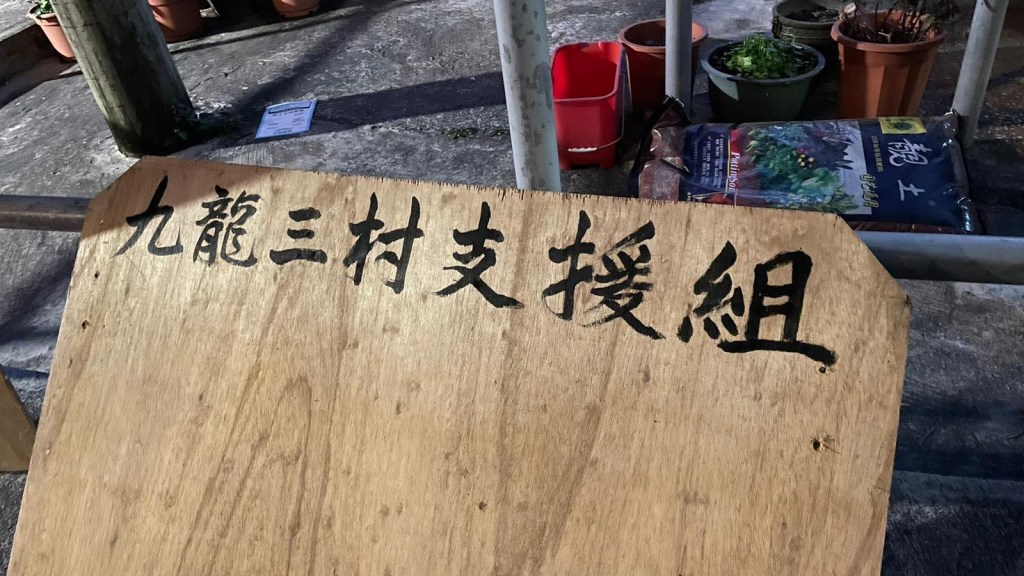 九龍三村支援組
靚土